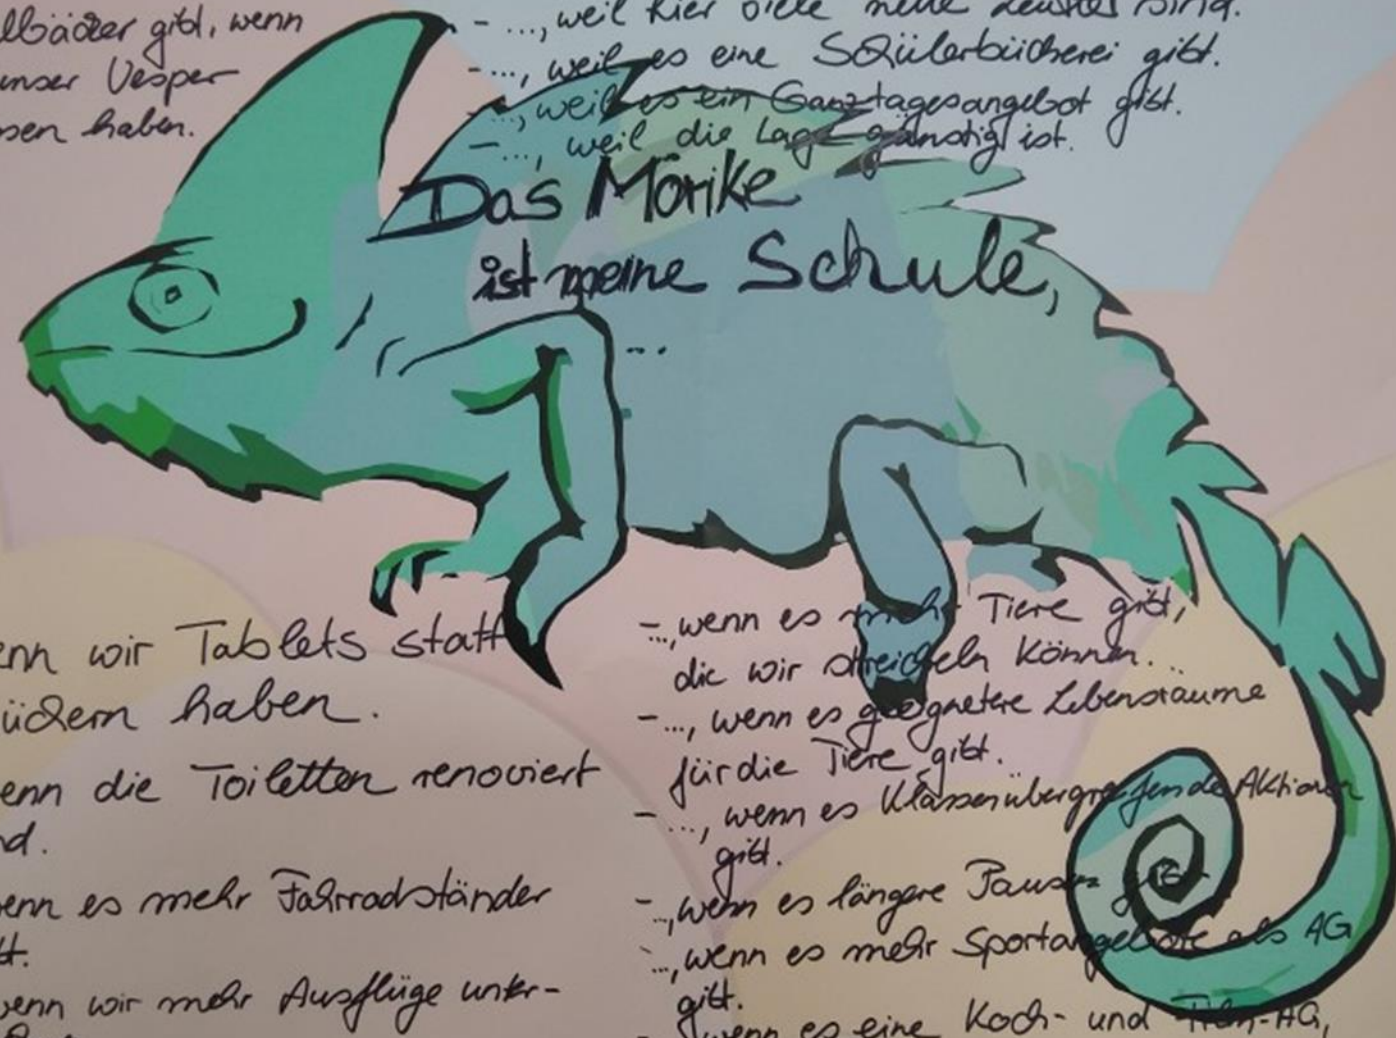 gibt, wenn
unser Vesper
haben.
- ..., weil hier viele nette sind.
- ..., weil es eine Schülerbücherei gibt.
- ..., weil es ein Ganztagesangebot gibt.
- ..., weil die Lage günstig ist.
Das Mörike
ist meine Schule,
...
wir Tablets statt
haben.
die Toiletten renoviert
es mehr Fahrradständer
wir mehr Ausflüge unter-
- ..., wenn es mehr Tiere gibt,
die wir streicheln können.
- ..., wenn es geeignetere Lebensräume
für die Tiere gibt.
- ..., wenn es Klassenübergreifende Aktionen
gibt.
- ..., wenn es längere Pausen gibt.
- ..., wenn es mehr Sportangebote als AG
gibt.
- wenn es eine Koch- und